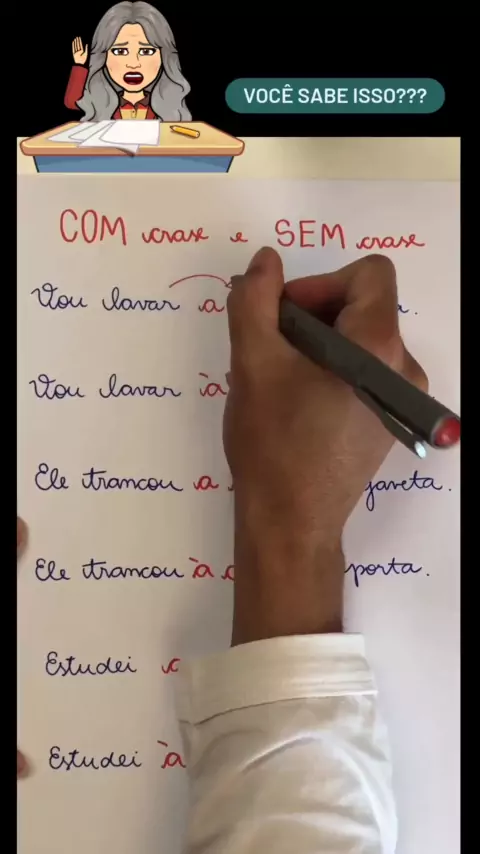 VOCÊ SABE ISSO???
COM crase e SEM crase
Vou lavar a
Vou lavar à
Ele trancou a gaveta.
Ele trancou à porta.
Estudei
Estudei à